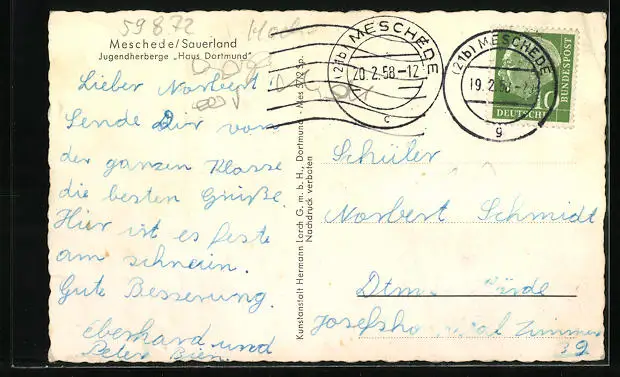 59872
Meschede/Sauerland
Jugendherberge „Haus Dortmund"
Lieber Norbert!
Sende Dir von
der ganzen Klasse
die besten Grüße.
Hier ist es feste
am schneien.
Gute Besserung.
Eberhard und
Peter
Kunstanstalt Hermann Lorch G. m. b. H., Dortmund - Mes 572 Sp.
Nachdruck verboten
(21b) MESCHEDE
20.2.58-12
c
(21b) MESCHEDE
19.2.58
g
10
DEUTSCHE
BUNDESPOST
Schüler
Norbert Schmidt
Dtm
Josefsho Zimmer